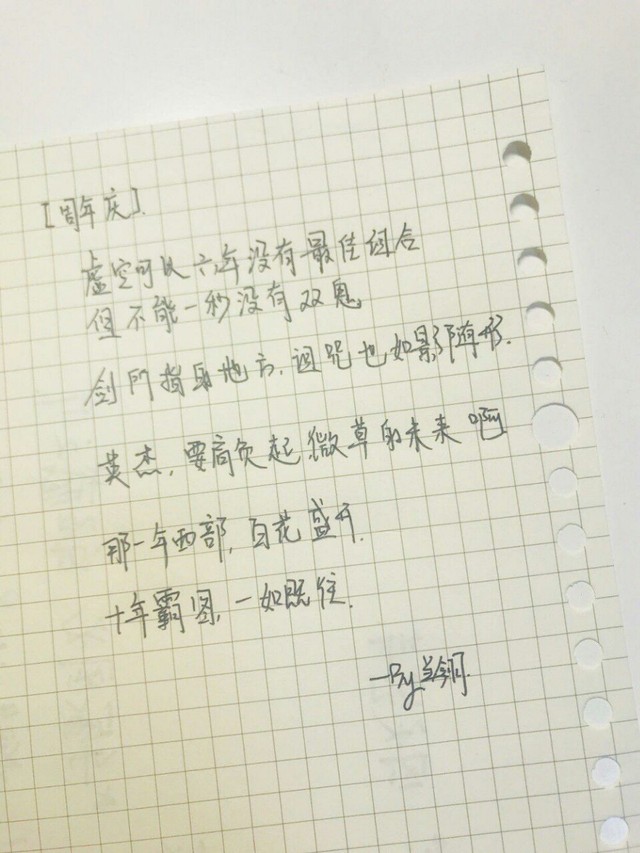 [周年庆].
虚空可以六年没有最佳组合
但不能一秒没有双鬼
剑所指的地方,诅咒也如影随形.
英杰,要肩负起微草的未来啊
那一年西部,百花盛开.
十年霸图,一如既往.
—By